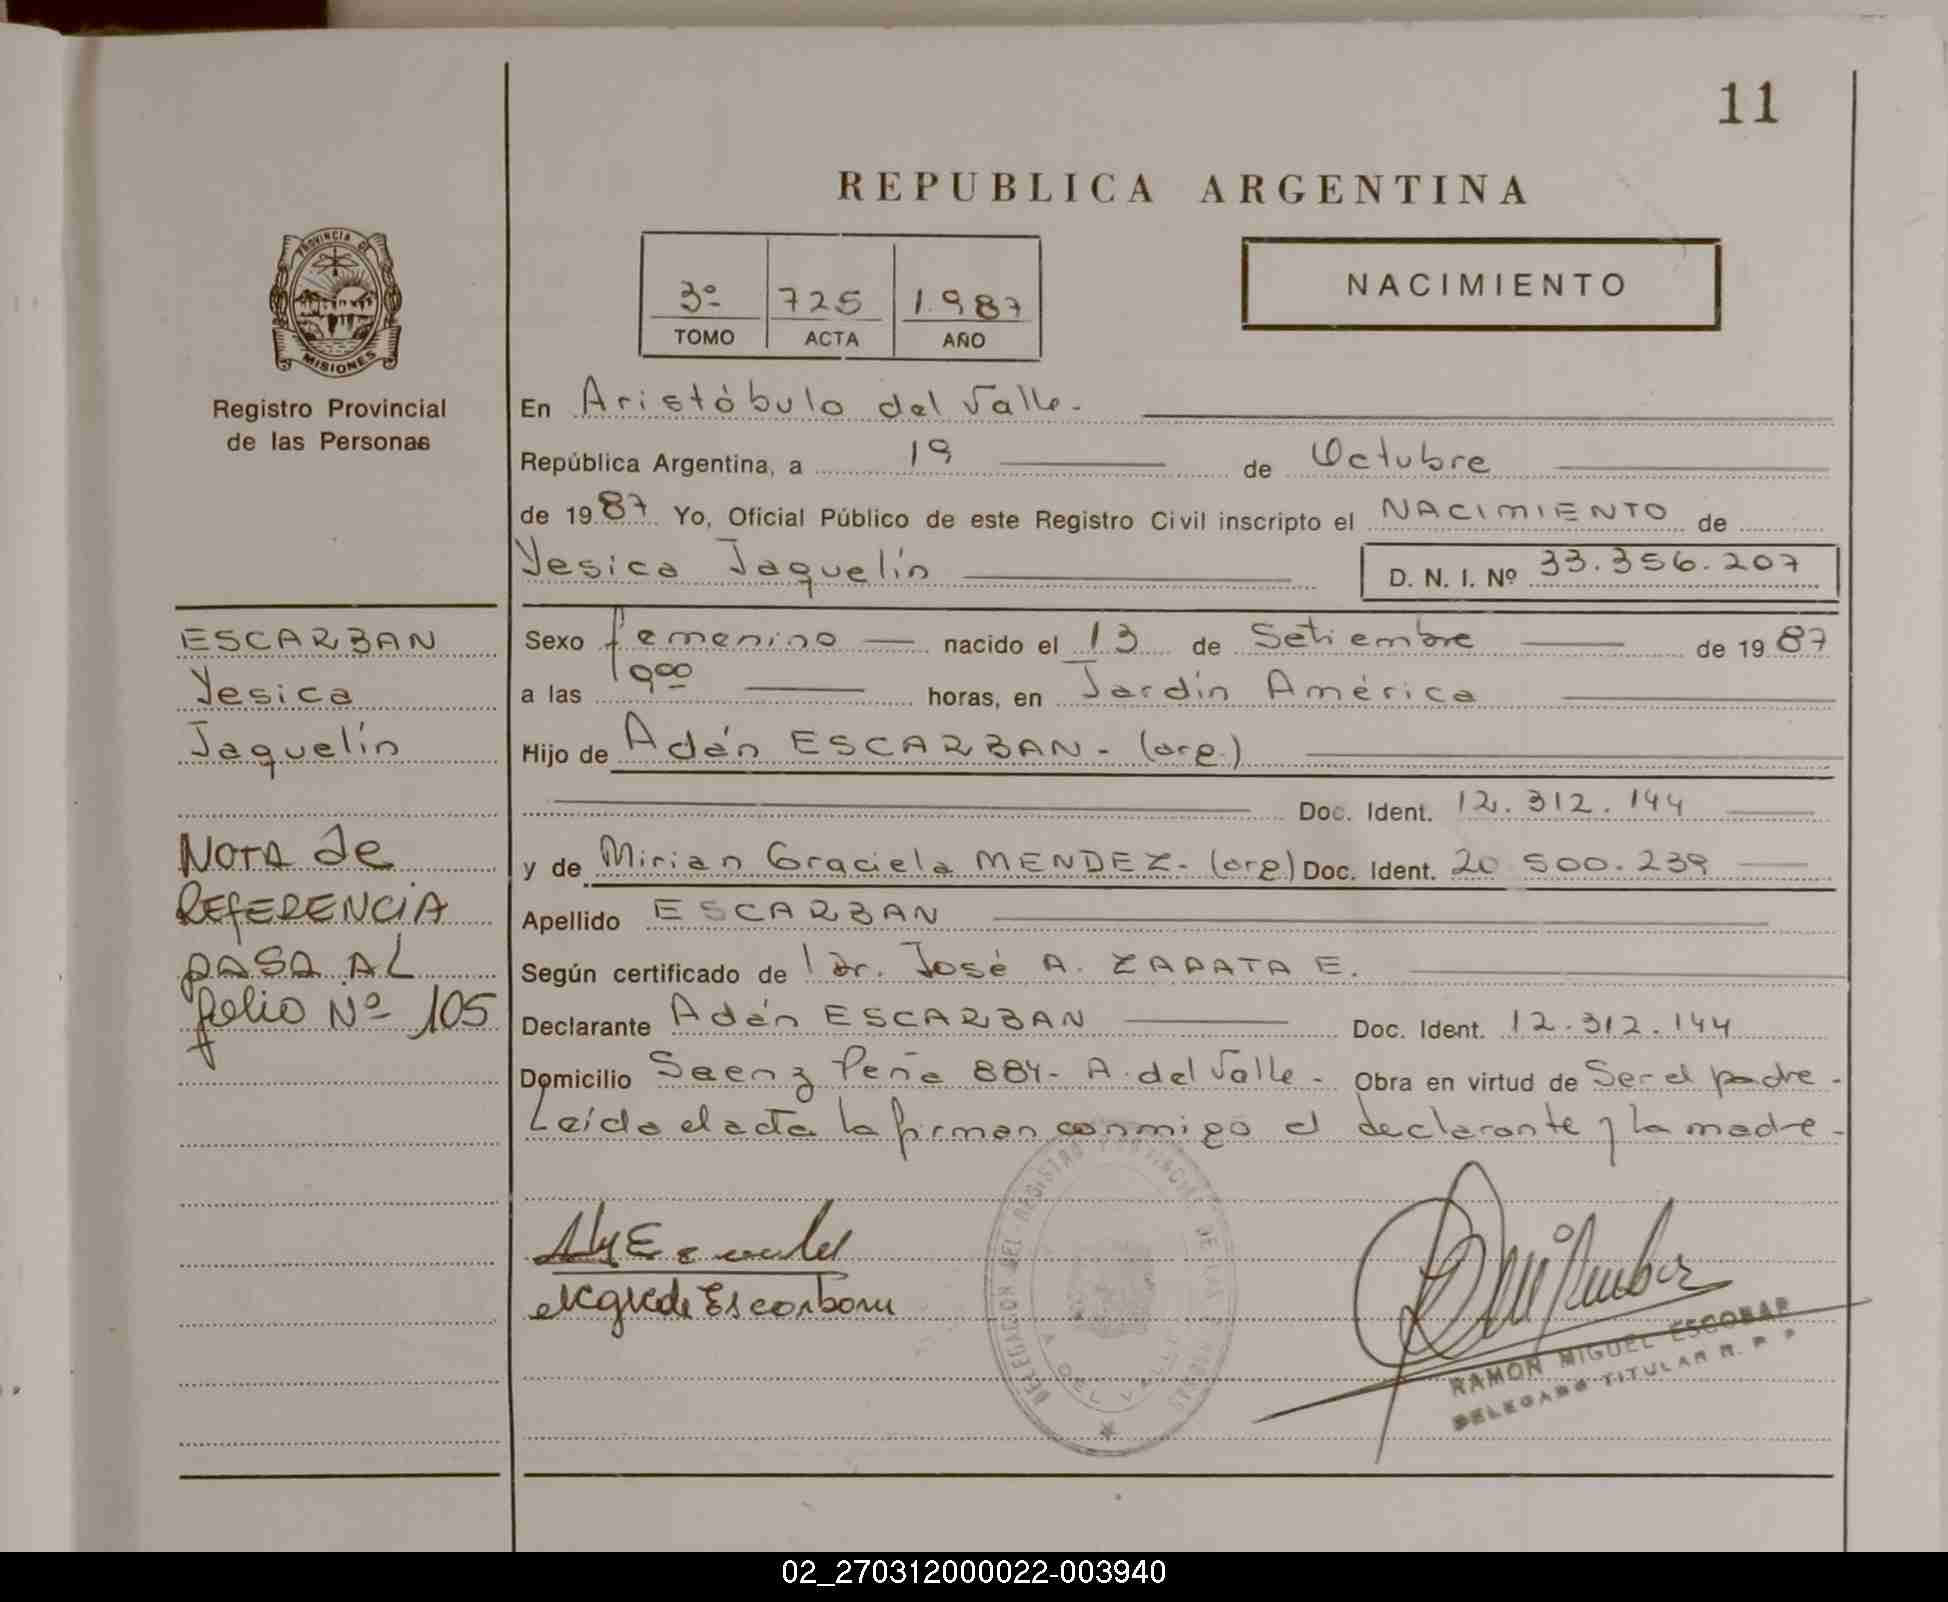 11
REPUBLICA ARGENTINA
PROVINCIA DE
MISIONES
Registro Provincial
de las Personas
3º 725 1.987
TOMO ACTA AÑO
NACIMIENTO
En Aristóbulo del Valle.
República Argentina, a 19 de Octubre
de 1987 Yo, Oficial Público de este Registro Civil inscripto el NACIMIENTO de
Yesica Jaquelín D. N. I. Nº 33.356.207
ESCARBAN
Yesica
Jaquelín
NOTA de
REFERENCIA
PASA AL
folio Nº 105
Sexo femenino nacido el 13 de Setiembre de 1987
a las 19 00 horas, en Jardín América
Hijo de Adán ESCARBAN - (arg.)
Doc. Ident. 12.312.144
y de Mirian Graciela MENDEZ - (arg.) Doc. Ident. 20.500.239
Apellido ESCARBAN
Según certificado de Dr. José A. ZAPATA E.
Declarante Adán ESCARBAN Doc. Ident. 12.312.144
Domicilio Saenz Peña 884 - A. del Valle - Obra en virtud de Ser el padre -
Leída el acta la firman conmigo el declarante y la madre -
DELEGACION DEL REGISTRO PROVINCIAL DE LAS PERSONAS
A. DEL VALLE
de Escarban
RAMON MIGUEL ESCOBAR
DELEGADO TITULAR R. P. P.
02_270312000022-003940